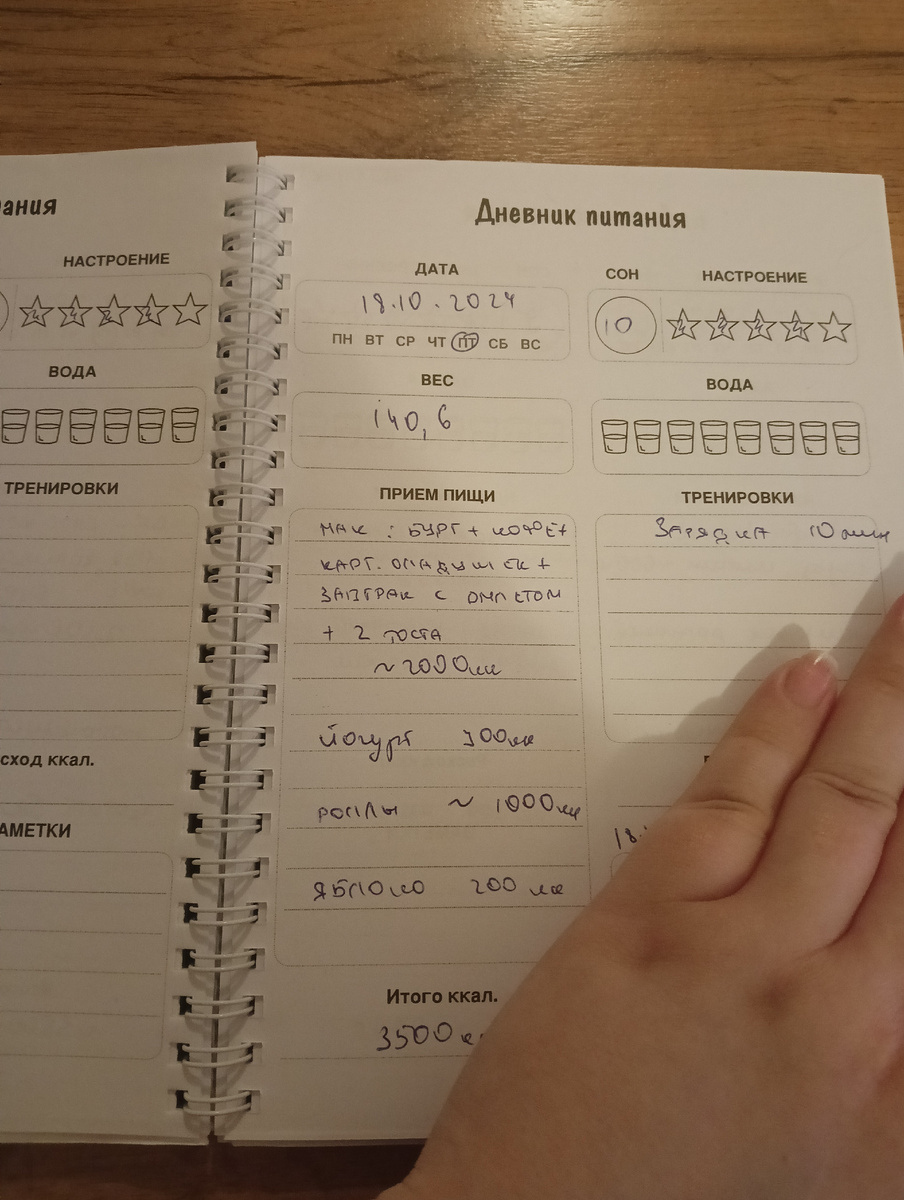 ания
НАСТРОЕНИЕ
ВОДА
ТРЕНИРОВКИ
сход ккал.
АМЕТКИ
Дневник питания
ДАТА
18.10.2024
ПН ВТ СР ЧТ ПТ СБ ВС
СОН
10
НАСТРОЕНИЕ
ВЕС
140,6
ВОДА
ПРИЕМ ПИЩИ
МАК : БУРГ + КОФЕ +
КАРТ. ОЛАДУШЕК +
ЗАВТРАК С ОМЛЕТОМ
+ 2 ТОСТА
~ 2000 кк
йогурт 300 кк
РОЛЛЫ ~ 1000 кк
ЯБЛОКО 200 кк
Итого ккал.
3500
ТРЕНИРОВКИ
ЗАРЯДКА 10 мин
18.